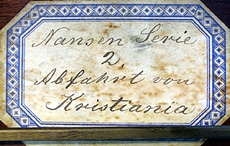 Nansen Serie
2,
Abfahrt von
Kristiania